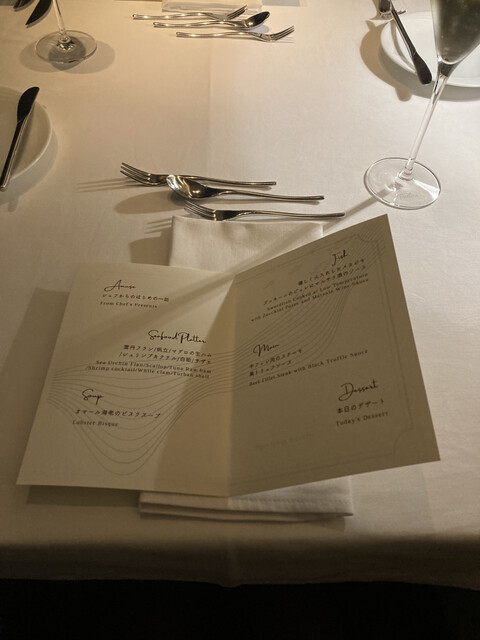 Amuse
シェフからのはじめの一皿
From Chef's Presents
Seafood Platter
雲丹フラン/帆立/マグロの生ハム
/シュリンプカクテル/白蛤/サザエ
Sea Urchin Flan/Scallop/Tuna Raw Ham
/Shrimp cocktail/White clam/Turban shell
Soup
オマール海老のビスクスープ
Lobster Bisque
Fish
Low Temperature
Main
牛フィレ肉のステーキ
黒トリュフソース
Beef Fillet Steak with Black Truffle Sauce
Dessert
本日のデザート
Today's Dessert